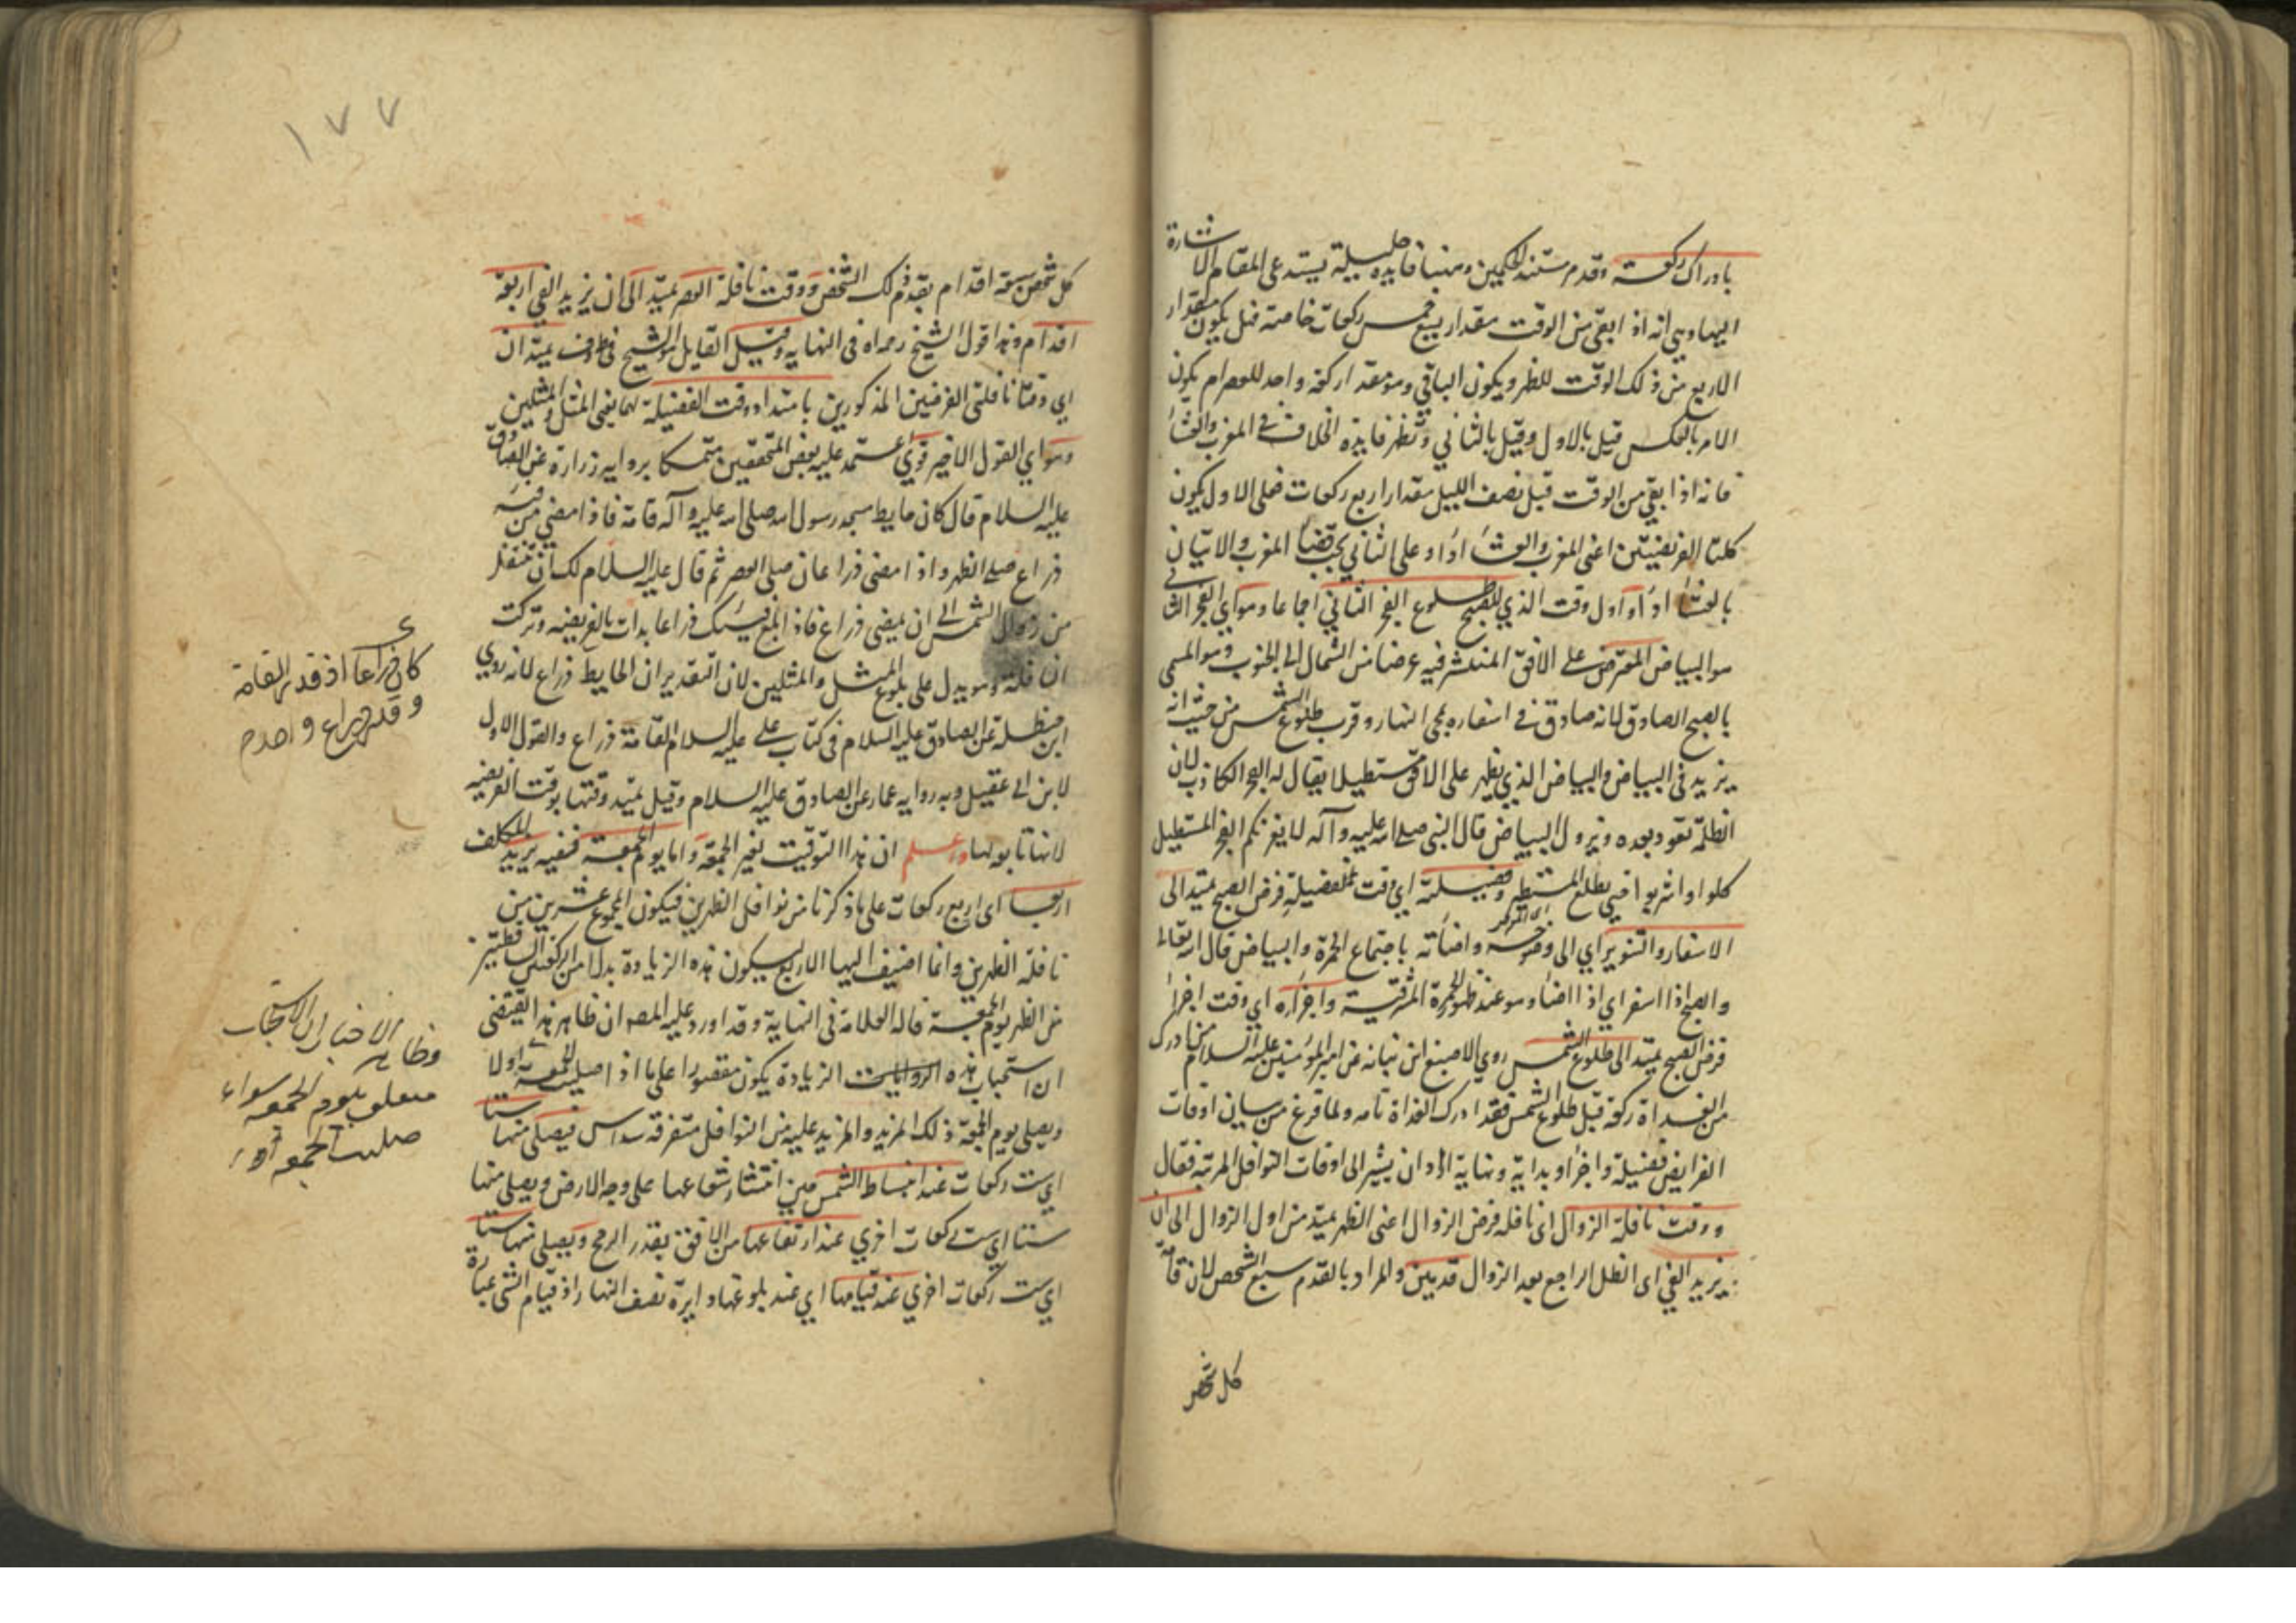 بادراك ركعة وقدم مستند الحكمين وههنا فايدة جليلة يستدعى المقام الاشارة
اليها وهي انه اذا بقى من الوقت مقدار يسع خمس ركعات خاصة فهل يكون مقدار
الاربع من ذلك الوقت للظهر ويكون الباقي وهو مقدار ركعة واحدة للعصر ام يكون
الامر بالعكس قيل بالاول وقيل بالثاني وتظهر فايدة الخلاف في المغرب والعشاء
فانه اذا بقى من الوقت قبل نصف الليل مقدار اربع ركعات فعلى الاول يكون
كلتا الفريضتين اعنى المغرب والعشاء اداء وعلى الثاني يجب قضاء المغرب والاتيان
بالعشاء اداء واول وقت الذي للصبح طلوع الفجر الثاني اجماعا وهو اي الفجر الثاني
هو البياض المعترض على الافق المنتشر فيه عرضا من الشمال الى الجنوب وهو المسمى
بالصبح الصادق لانه صادق في اسفاره بمجى النهار وقرب طلوع الشمس من حيث انه
يزيد في البياض والبياض الذي يظهر على الافق مستطيلا يقال له الفجر الكاذب لان
الظلمة تعود بعده ويزول البياض قال النبي صلى الله عليه وآله لا يغرنكم الفجر المستطيل
كلوا واشربوا حتى يطلع المستطير وفضيلته اي وقت فضيلة فرض الصبح يمتد الى
الاسفار والتنوير اي الى وضوحه واضائته باجتماع الحمرة والبياض قال الله تعالى
والصبح اذا اسفر اي اذا اضاء وهو عند ظهور الحمرة المشرقية واجزاءه اي وقت اجزاء
فرض الصبح يمتد الى طلوع الشمس روي الاصبغ ابن نباته عن امير المؤمنين عليه السلام من ادرك
من الغداة ركعة قبل طلوع الشمس فقد ادرك الغداة تامه ولما فرغ من بيان اوقات
الفرايض فضيلة واجزاء وبداية ونهاية اراد ان يشير الى اوقات النوافل المرتبة فقال
ووقت نافلة الزوال اى نافله فرض الزوال اعنى الظهر يمتد من اول الزوال الى ان
يزيد الفئ اى الظل الراجع بعد الزوال قدمين والمراد بالقدم سبع الشخص لان قامة
كل شخص
١٧٧
كل شخص سبعة اقدام بقدم ذلك الشخص ووقت نافلة العصر يمتد الى ان يزيد الفئ اربعة
اقدام وهذا قول الشيخ رحمه الله في النهايه وقيل القايل هو الشيخ في يمتد ان
اي وقتا نافلتى الفرضين المذكورين بامتداد وقت الفضيلة لهما يعنى المثل والمثلين
وهو اي القول الاخير قوي اعتمد عليه بعض المحققين متمسكا بروايه زرارة عن الصادق
عليه السلام قال كان حايط مسجد رسول الله صلى الله عليه وآله قامة فاذا مضى من فيئه
ذراع صلى الظهر واذا مضى ذراعان صلى العصر ثم قال عليه السلام لك ان تتنفل
من زوال الشمس الى ان يمضى ذراع فاذا بلغ فيئك ذراعا بدات بالفريضه وتركت
النافلة وهو يدل على بلوغ المثل والمثلين لان التقدير ان الحايط ذراع لانه روي
ابن حنظلة عن الصادق عليه السلام في كتاب على عليه السلام القامة ذراع والقول الاول
لابن ابي عقيل وبه روايه عمار عن الصادق عليه السلام وقيل يمتد وقتها بوقت الفريضه
لانها تابع لها واعلم ان هذا التوقيت لغير الجمعة واما يوم الجمعة ففيه يزيد المكلف
اربعا اى اربع ركعات على ما ذكرنا من نوافل الظهرين فيكون المجموع عشرين من
نافلة الظهرين وانما اضيف اليها الاربع ليكون هذه الزيادة بدلا من الركعتين الساقطتين
من الظهر يوم الجمعة قاله العلامة في النهاية وقد اورد عليه المصه ان ظاهر هذا يقتضى
ان استحباب هذه الزيادة يكون مقصورا على ما اذا صليت الجمعة اولا
ويصلى يوم الجمعة ذلك المزيد والمزيد عليه من النوافل متفرقة سداس فيصلى منها ستا
اي ست ركعات عند انبساط الشمس حين انتشار شعاعها على وجه الارض ويصلى منها
ستا اي ست ركعات اخري عند ارتفاعها من الافق بقدر الرمح ويصلى منها ستا
اي ست ركعات اخري عند قيامها اي عند بلوغها دايرة نصف النهار اذ قيام الشئ عبارة
كان ذراعا اذ قدر القامة
وقدر ذراع واحد
وظاهر الاخبار ان الاستحباب
متعلق بيوم الجمعه سواء
صليت الجمعه اولا